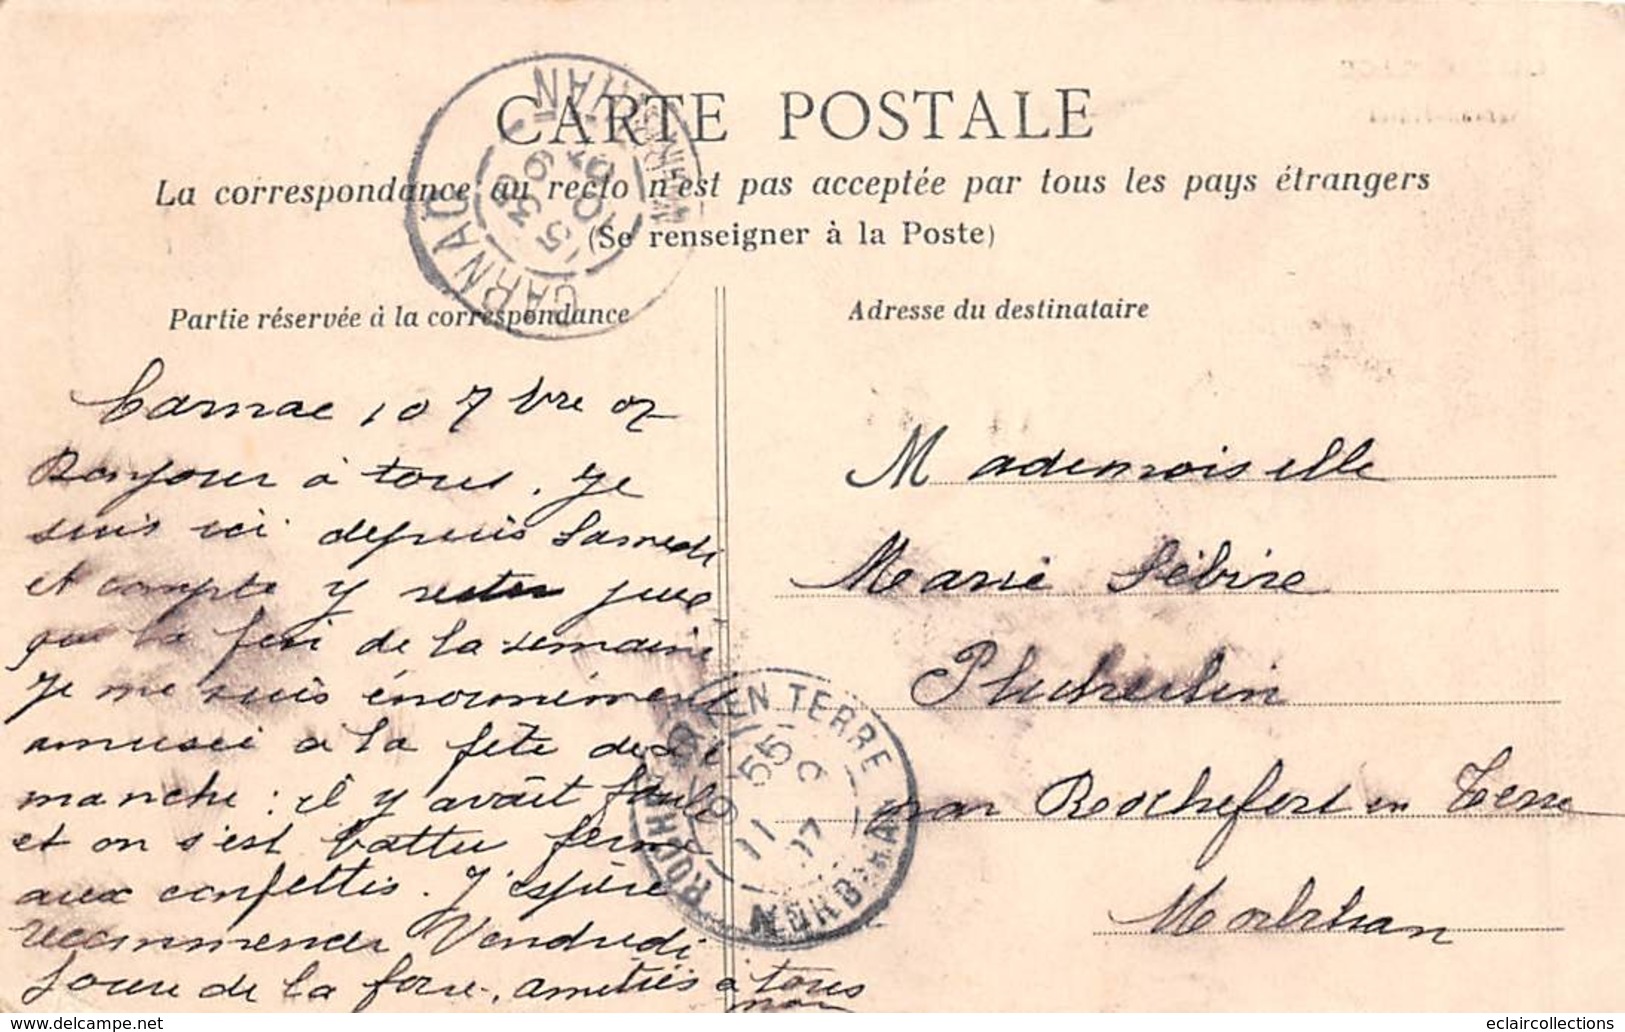 CARTE POSTALE
La correspondance au recto n'est pas acceptée par tous les pays étrangers
(Se renseigner à la Poste)
Partie réservée à la correspondance
Carnac 10 7bre 07
Bonjour à tous. Je
suis ici depuis Samedi
et compte y rester jus
qu'la fin de la semaine
Je me suis énormément
amusée à la fête de
manche : il y avait foule
et on s'est battu ferme
aux confettis. J'espère
recommencer Vendredi
jour de la foire. amitiés à tous
Adresse du destinataire
Mademoiselle
Marie Sébire
Pluherlin
par Rochefort en Terre
Morbihan
CARNAC
MORBIHAN
15 30
10
ROCHEFORT EN TERRE
55
11
07
MORBIHAN
eclaircollections